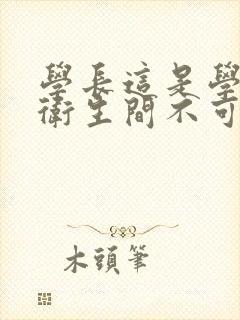 學長這是學
衛生間不可
木頭筆